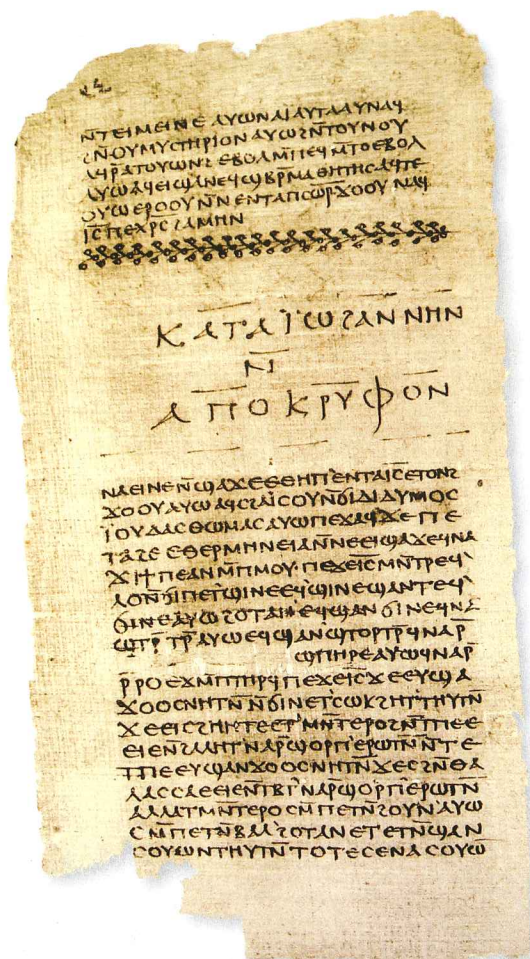 ⲛ̄ⲧⲉⲓⲙⲉⲓⲛⲉ ⲁⲩⲱ ⲛⲁⲓ ⲁⲩⲧⲁⲁⲩ ⲛⲁϥ
ϩⲛ̄ⲟⲩⲙⲩⲥⲧⲏⲣⲓⲟⲛ ⲁⲩⲱ ϩⲛ̄ⲧⲟⲩⲛⲟⲩ
ⲁϥⲣ̄ⲁⲧⲟⲩⲱⲛϩ ⲉⲃⲟⲗ ⲙ̄ⲡⲉϥⲙ̄ⲧⲟ ⲉⲃⲟⲗ
ⲁⲩⲱ ⲁϥⲉⲓ ϣⲁⲛⲉϥϣⲃⲣ̄ⲙⲁⲑⲏⲧⲏⲥ ⲁϥⲧⲉ
ⲟⲩⲱ ⲉⲣⲟⲟⲩ ⲛ̄ⲛⲉⲛⲧⲁⲡⲥⲱ̄ⲣ ϫⲟⲟⲩ ⲛⲁϥ
ⲓ̅ⲥ̅ ⲡⲉⲭⲣ̅ⲥ̅ ϩⲁⲙⲏⲛ
ⲕⲁⲧⲁ ⲓⲱϩⲁⲛⲛⲏⲛ
ⲛ̄
ⲁⲡⲟⲕⲣⲩⲫⲟⲛ
ⲛⲁⲉⲓ ⲛⲉ ⲛ̄ϣⲁϫⲉ ⲉⲑⲏⲡ ⲉⲛⲧⲁⲓ̅ⲥ̅ ⲉⲧⲟⲛϩ
ϫⲟⲟⲩ ⲁⲩⲱ ⲁϥⲥϩⲁⲓⲥⲟⲩ ⲛ̄ϭⲓ ⲇⲓⲇⲩⲙⲟⲥ
ⲓ̈ⲟⲩⲇⲁⲥ ⲑⲱⲙⲁⲥ ⲁⲩⲱ ⲡⲉϫⲁϥ ϫⲉ ⲡⲉ
ⲧⲁϩⲉ ⲉⲑⲉⲣⲙⲏⲛⲉⲓⲁ ⲛ̄ⲛⲉⲉⲓϣⲁϫⲉ ϥⲛⲁ
ϫⲓϯⲡⲉ ⲁⲛ ⲙ̄ⲡⲙⲟⲩ ⲡⲉϫⲉⲓ̅ⲥ̅ ⲙⲛ̄ⲧⲣⲉϥ
ⲗⲟ ⲛ̄ϭⲓ ⲡⲉⲧϣⲓⲛⲉ ⲉϥϣⲓⲛⲉ ϣⲁⲛⲧⲉϥ
ϭⲓⲛⲉ ⲁⲩⲱ ϩⲟⲧⲁⲛ ⲉϥϣⲁⲛϭⲓⲛⲉ ϥⲛⲁ
ϣⲧⲣ̄ⲧⲣ̄ ⲁⲩⲱ ⲉϥϣⲁⲛϣⲧⲟⲣⲧⲣ̄ ϥⲛⲁⲣ̄
ϣⲡⲏⲣⲉ ⲁⲩⲱ ϥⲛⲁⲣ̄
ⲣ̄ⲣⲟ ⲉϫⲙ̄ⲡⲧⲏⲣϥ ⲡⲉϫⲉⲓ̅ⲥ̅ ϫⲉ ⲉⲩϣⲁ
ϫⲟⲟⲥ ⲛⲏⲧⲛ̄ ⲛ̄ϭⲓ ⲛⲉⲧⲥⲱⲕ ϩⲏⲧⲧⲏⲩⲧⲛ̄
ϫⲉ ⲉⲓⲥϩⲏⲏⲧⲉ ⲉⲧⲙⲛ̄ⲧⲉⲣⲟ ϩⲛ̄ⲧⲡⲉ ⲉ
ⲉⲓⲉ ⲛ̄ϩⲁⲗⲏⲧ ⲛⲁⲣ̄ϣⲟⲣⲡ ⲉⲣⲱⲧⲛ̄ ⲛ̄ⲧⲉ
ⲧⲡⲉ ⲉⲩϣⲁⲛϫⲟⲟⲥ ⲛⲏⲧⲛ̄ ϫⲉ ⲥϩⲛ̄ⲑⲁ
ⲗⲁⲥⲥⲁ ⲉⲉⲓⲉ ⲛ̄ⲧⲃⲧ ⲛⲁⲣ̄ϣⲟⲣⲡ ⲉⲣⲱⲧⲛ̄
ⲁⲗⲗⲁ ⲧⲙⲛ̄ⲧⲉⲣⲟ ⲥⲙ̄ⲡⲉⲧⲛ̄ϩⲟⲩⲛ ⲁⲩⲱ
ⲥⲙ̄ⲡⲉⲧⲛ̄ⲃⲁⲗ ϩⲟⲧⲁⲛ ⲉⲧⲉⲧⲛ̄ϣⲁⲛ
ⲥⲟⲩⲱⲛⲧⲏⲩⲧⲛ̄ ⲧⲟⲧⲉ ⲥⲉⲛⲁⲥⲟⲩⲱ